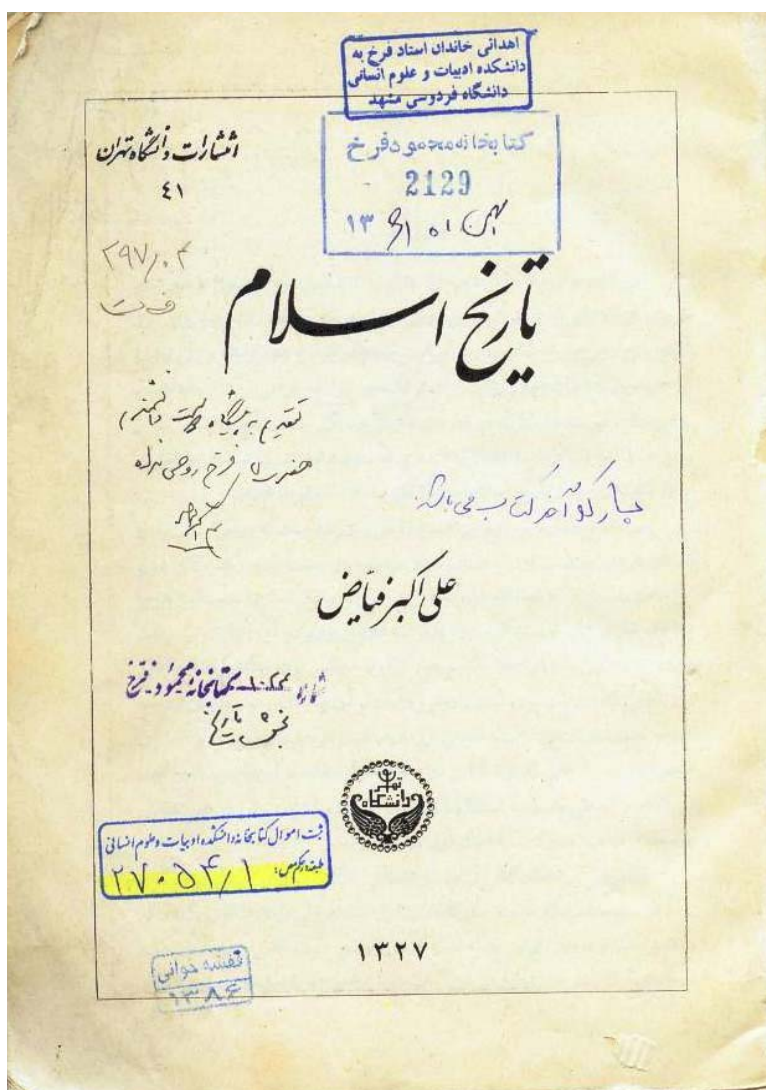 اهدائی خاندان استاد فرخ به
دانشکده ادبیات و علوم انسانی
دانشگاه فردوسی مشهد
انتشارات دانشگاه تهران
۴۱
کتابخانه محمود فرخ
2129
بهمن ماه ۱۳
۲۹۷/۰۴
تاریخ اسلام
تقدیم به پیشگاه
حضرت فرخ روحی فداه
کتاب می باشد
علی اکبر فیاض
شماره کتابخانه محمود فرخ
بخش تاریخ
تهران
دانشگاه
ثبت اموال کتابخانه دانشکده ادبیات و علوم انسانی
۲۷۰۵۴/۱
۱۳۲۷
قفسه خوانی
۱۳۸۶